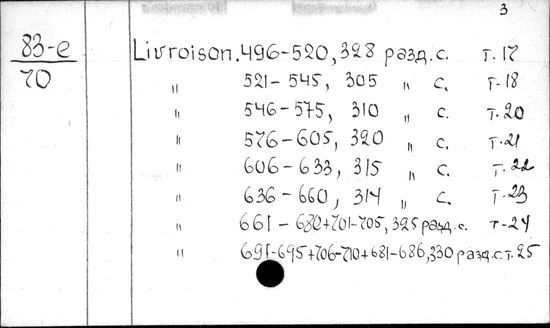 3
83-е
70
Livroison. 496-520, 328 разд. с. т. 17
" 521-545, 305 " с. т-18
" 546-575, 310 " с. т. 20
" 576-605, 320 " с. т. 21
" 606-633, 315 " с. т. 22
" 636-660, 314 " с. т. 23
" 661-680+701-705, 325 разд. с. т-24
" 691-695+706-710+681-686, 330 разд. с. т. 25